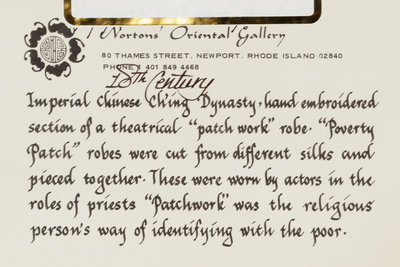 Nortons' Oriental Gallery
80 THAMES STREET, NEWPORT, RHODE ISLAND 02840
PHONE 1 401 849 4468
Century
Imperial Chinese Ching Dynasty, hand embroidered
section of a theatrical "patch work" robe. "Poverty
Patch" robes were cut from different silks and
pieced together. These were worn by actors in the
roles of priests "Patchwork" was the religious
person's way of identifying with the poor.